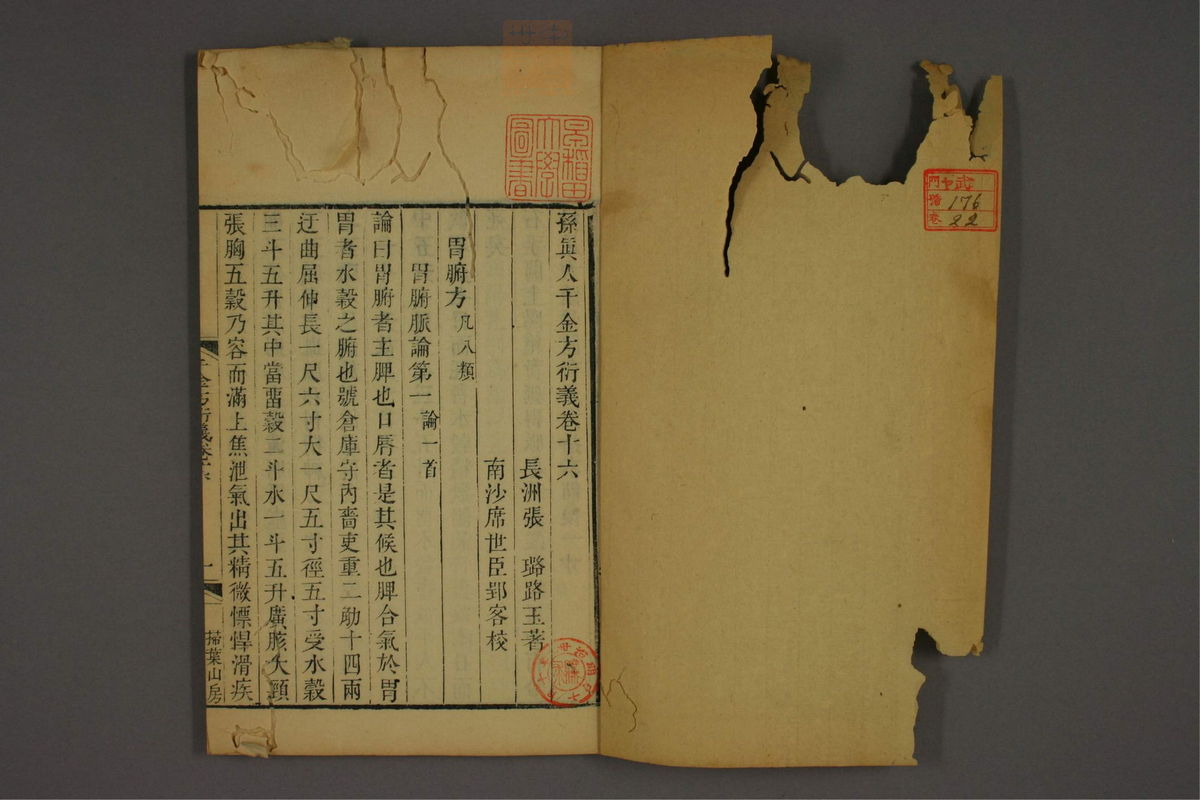 孫眞人千金方衍義卷十六
長洲張 璐路玉著
南沙席世臣郢客校
胃腑方 凡八類
胃腑脈論第一 論一首
論曰胃腑者主脾也口唇者是其候也脾合氣於胃
胃者水穀之腑也號倉庫守內嗇吏重二觔十四兩
迂曲屈伸長一尺六寸大一尺五寸徑五寸受水穀
三斗五升其中當畱穀二斗水一斗五升廣胲大頸
張胸五穀乃容而滿上焦泄氣出其精微慓悍滑疾
千金方衍義卷十六
一
掃葉山房
早稻田大學圖書
門 ヤ武
號 176
卷 22